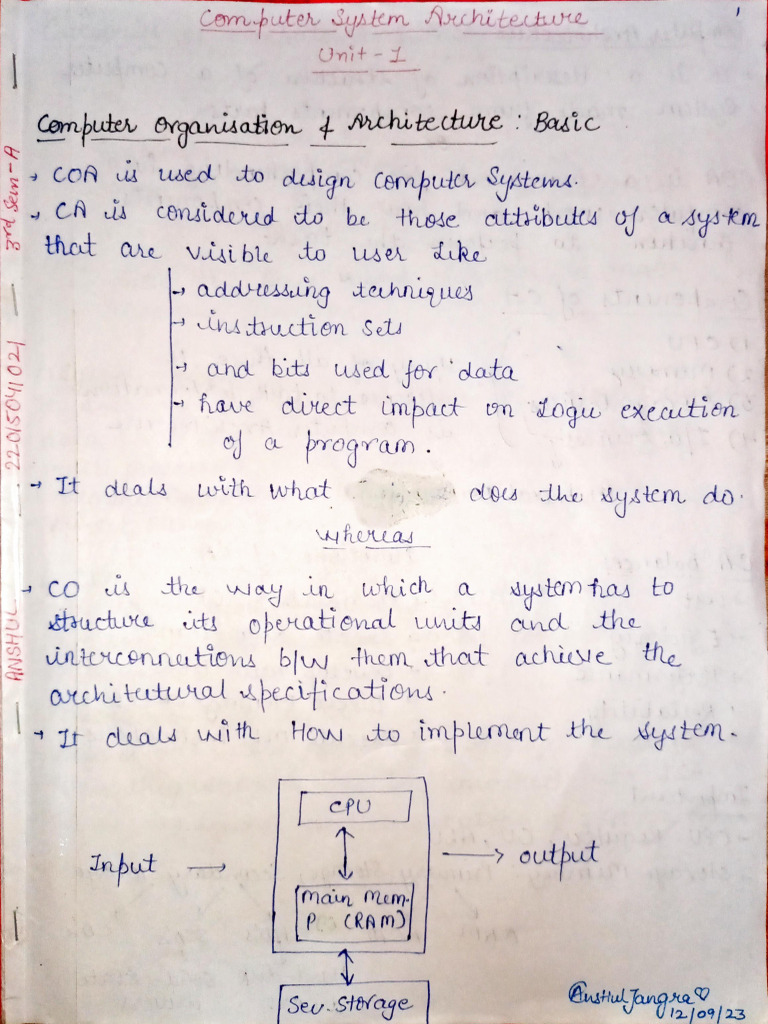 Computer System Architecture
1
Unit - 1
Computer Organisation & Architecture : Basic
→ COA is used to design Computer Systems.
→ CA is considered to be those attributes of a system
that are visible to user like
→ addressing techniques
→ instruction sets
→ and bits used for data
→ have direct impact on Logic execution
of a program.
→ It deals with what does the system do.
whereas
→ CO is the way in which a system has to
structure its operational units and the
interconnections b/w them that achieve the
architectural specifications.
→ It deals with How to implement the system.
CPU
Input → → output
Main Mem.
P. (RAM)
Sec. Storage
@AnsHul Jangra♡
12/09/23
ANSHUL — 22015041021 — 3rd Sem - A